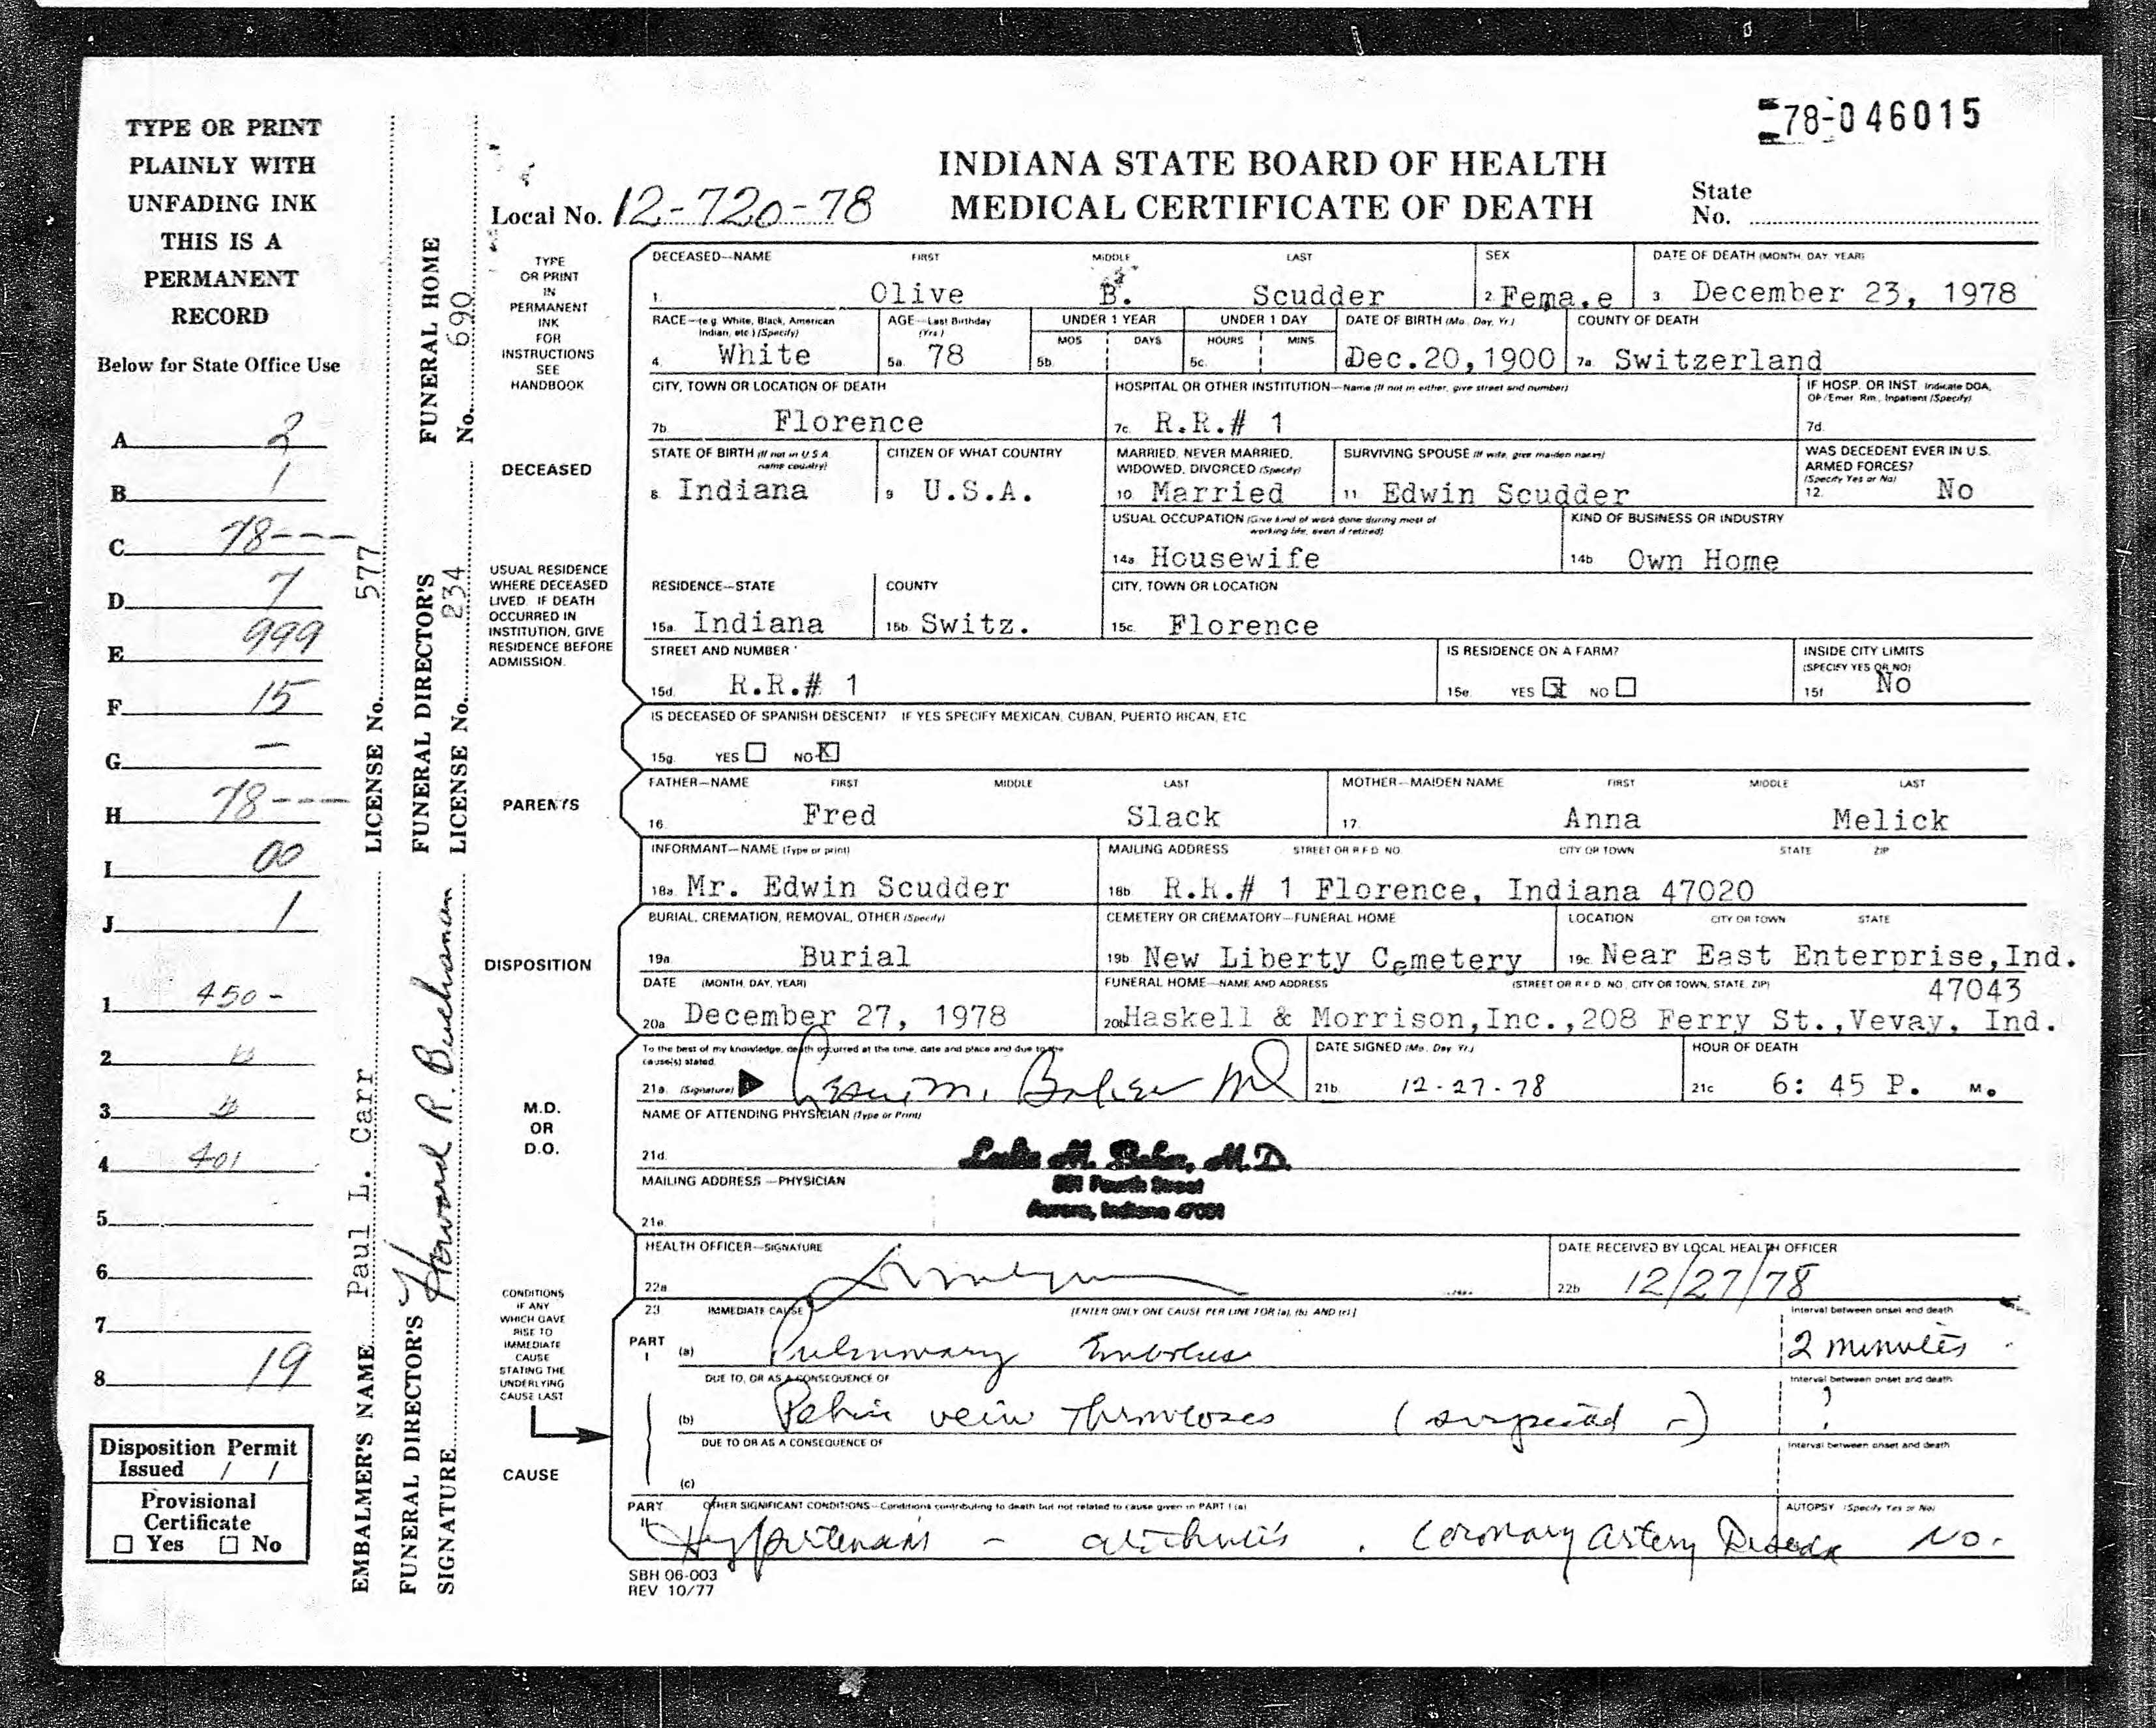 78-046015
TYPE OR PRINT
PLAINLY WITH
UNFADING INK
THIS IS A
PERMANENT
RECORD
Below for State Office Use
A 2
B 1
C 78---
D 7
E 999
F 15
G —
H 78---
I 00
J 1
1 450-
2
3
4 401
5
6
7
8 19
Disposition Permit
Issued / /
Provisional
Certificate
☐ Yes ☐ No
EMBALMER'S NAME Paul L. Carr LICENSE No. 577
FUNERAL DIRECTOR'S
SIGNATURE Howard R. Buchanan
FUNERAL DIRECTOR'S
LICENSE No. 234
FUNERAL HOME
No. 690
INDIANA STATE BOARD OF HEALTH
MEDICAL CERTIFICATE OF DEATH
Local No. 12-720-78
State
No.
TYPE
OR PRINT
IN
PERMANENT
INK
FOR
INSTRUCTIONS
SEE
HANDBOOK
DECEASED
USUAL RESIDENCE
WHERE DECEASED
LIVED. IF DEATH
OCCURRED IN
INSTITUTION, GIVE
RESIDENCE BEFORE
ADMISSION.
PARENTS
DISPOSITION
M.D.
OR
D.O.
CONDITIONS
IF ANY
WHICH GAVE
RISE TO
IMMEDIATE
CAUSE
STATING THE
UNDERLYING
CAUSE LAST
CAUSE
DECEASED—NAME FIRST MIDDLE LAST SEX DATE OF DEATH (MONTH, DAY, YEAR)
1. Olive B. Scudder 2. Fema.e 3. December 23, 1978
RACE—(e.g. White, Black, American Indian, etc.) (Specify) AGE—Last Birthday (Yrs.) UNDER 1 YEAR UNDER 1 DAY DATE OF BIRTH (Mo., Day, Yr.) COUNTY OF DEATH
MOS DAYS HOURS MINS
4. White 5a. 78 5b. 5c. Dec.20,1900 7a. Switzerland
CITY, TOWN OR LOCATION OF DEATH HOSPITAL OR OTHER INSTITUTION—Name (If not in either, give street and number) IF HOSP. OR INST. Indicate DOA, OP/Emer. Rm., Inpatient (Specify)
7b. Florence 7c. R.R.# 1 7d.
STATE OF BIRTH (If not in U.S.A. name country) CITIZEN OF WHAT COUNTRY MARRIED, NEVER MARRIED, WIDOWED, DIVORCED (Specify) SURVIVING SPOUSE (If wife, give maiden name) WAS DECEDENT EVER IN U.S. ARMED FORCES? (Specify Yes or No)
8. Indiana 9. U.S.A. 10. Married 11. Edwin Scudder 12. No
USUAL OCCUPATION (Give kind of work done during most of working life, even if retired) KIND OF BUSINESS OR INDUSTRY
14a. Housewife 14b. Own Home
RESIDENCE—STATE COUNTY CITY, TOWN OR LOCATION
15a. Indiana 15b. Switz. 15c. Florence
STREET AND NUMBER IS RESIDENCE ON A FARM? INSIDE CITY LIMITS (SPECIFY YES OR NO)
15d. R.R.# 1 15e. YES ☒ NO ☐ 15f. No
IS DECEASED OF SPANISH DESCENT? IF YES SPECIFY MEXICAN, CUBAN, PUERTO RICAN, ETC
15g. YES ☐ NO ☒
FATHER—NAME FIRST MIDDLE LAST MOTHER—MAIDEN NAME FIRST MIDDLE LAST
16. Fred Slack 17. Anna Melick
INFORMANT—NAME (Type or print) MAILING ADDRESS STREET OR R.F.D. NO. CITY OR TOWN STATE ZIP
18a. Mr. Edwin Scudder 18b. R.R.# 1 Florence, Indiana 47020
BURIAL, CREMATION, REMOVAL, OTHER (Specify) CEMETERY OR CREMATORY—FUNERAL HOME LOCATION CITY OR TOWN STATE
19a. Burial 19b. New Liberty Cemetery 19c. Near East Enterprise,Ind.
DATE (MONTH, DAY, YEAR) FUNERAL HOME—NAME AND ADDRESS (STREET OR R.F.D. NO., CITY OR TOWN, STATE, ZIP) 47043
20a. December 27, 1978 20b. Haskell & Morrison,Inc.,208 Ferry St.,Vevay, Ind.
To the best of my knowledge, death occurred at the time, date and place and due to the cause(s) stated. DATE SIGNED (Mo., Day, Yr.) HOUR OF DEATH
21a. (Signature) Leslie M. Baker MD 21b. 12-27-78 21c. 6: 45 P. M.
NAME OF ATTENDING PHYSICIAN (Type or Print)
21d. Leslie M. Baker, M.D.
MAILING ADDRESS—PHYSICIAN Fourth Street
21e. Aurora, Indiana 47001
HEALTH OFFICER—SIGNATURE DATE RECEIVED BY LOCAL HEALTH OFFICER
22a. 22b. 12/27/78
23 IMMEDIATE CAUSE [ENTER ONLY ONE CAUSE PER LINE FOR (a), (b), AND (c)] Interval between onset and death
PART I (a) Pulmonary Embolus 2 minutes
DUE TO, OR AS A CONSEQUENCE OF Interval between onset and death
(b) Pelvic vein thromboses (suspected -) ?
DUE TO OR AS A CONSEQUENCE OF Interval between onset and death
(c)
PART II OTHER SIGNIFICANT CONDITIONS—Conditions contributing to death but not related to cause given in PART I (a) AUTOPSY (Specify Yes or No)
Hypertension - arthritis . Coronary Artery Disease No.
SBH 06-003
REV 10/77